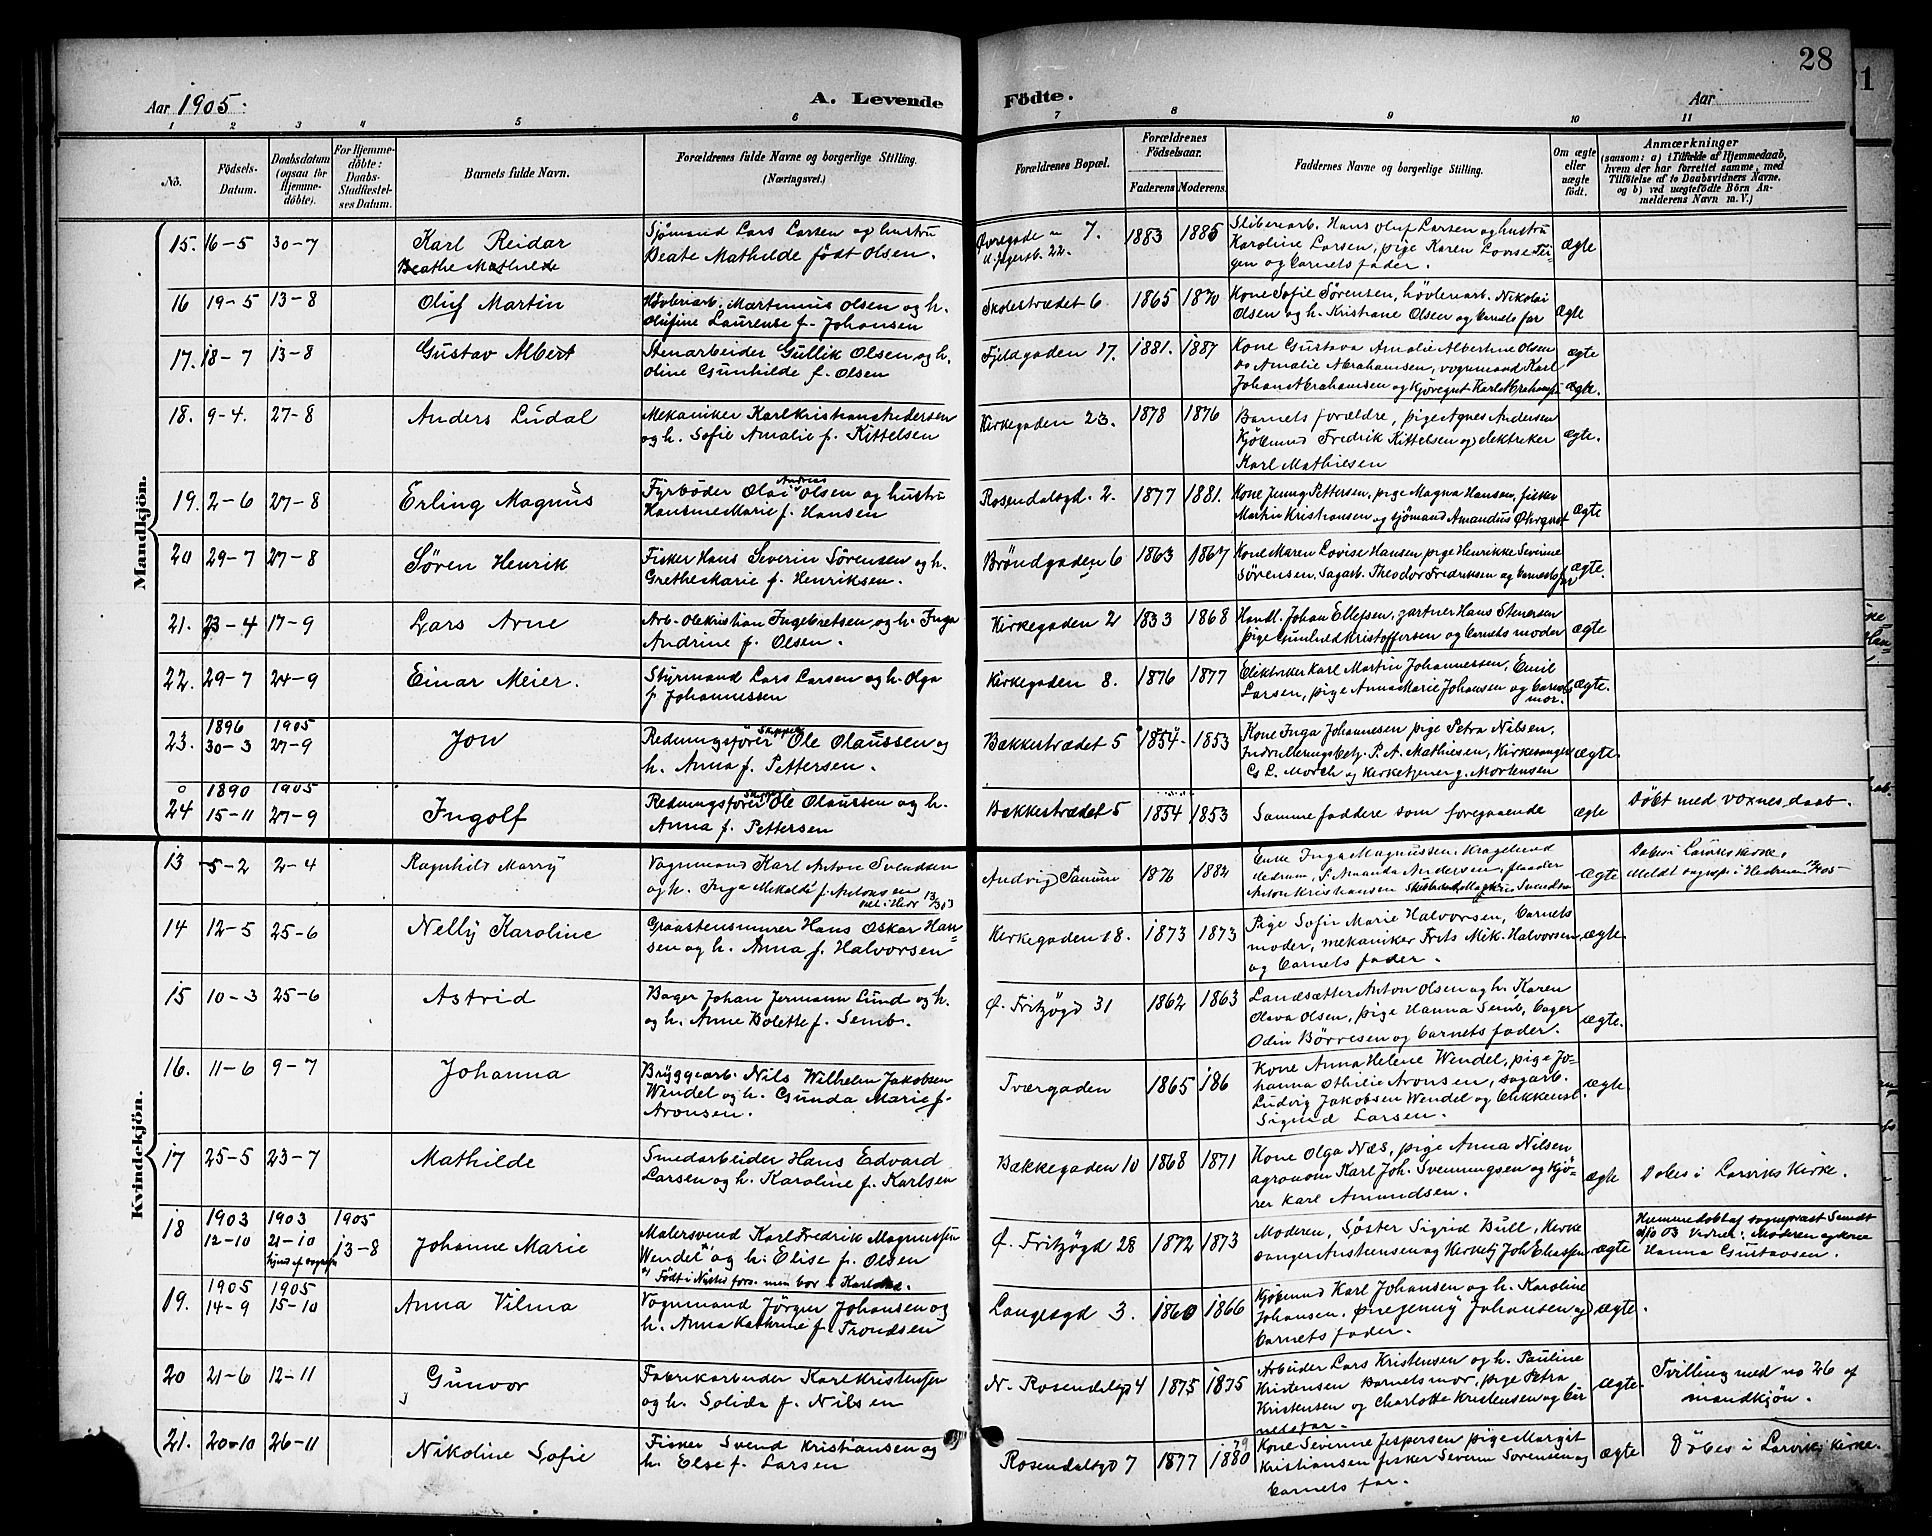 28
Aar 1905.
A. Levende Födte.
Aar
1 2 3 4 5 6 7 8 9 10 11
No.
Födsels-Datum.
Daabsdatum (ogsaa for Hjemme-döbte).
For Hjemme-döbte: Daabs-Stadfæstel-ses Datum.
Barnets fulde Navn.
Forældrenes fulde Navne og borgerlige Stilling.
(Næringsvei.)
Forældrenes Bopæl.
Forældrenes Födselsaar.
Faderens. Moderens.
Faddernes Navne og borgerlige Stilling.
Om ægte eller uægte födt.
Anmærkninger
(saasom: a) i Tilfælde af Hjemmedaab,
hvem der har forrettet samme, med
Tilföielse af to Daabsvidners Navne,
og b) ved uægtefödte Börn An-
melderens Navn m. V.)
Mandkjön.
15. 16-5 30-7 Karl Reidar
Sjømand Lars Larsen og hustru
Beate Mathilde født Olsen.
7. 1883 1885
Sliberiarb. Hans Oluf Larsen og hustru
Karoline Larsen, pige Karen Lovise
gen og barnets fader.
ægte
16 19-5 13-8 Oluf Martin
Høvleriarb. Martinius Olsen og h.
Olufine Laurense f. Johansen
Skolestrædet 6 1865 1870
Kone Sofie Sørensen, høvleriarb. Nikolai
Olsen og h. Kristiane Olsen og barnets far
ægte
17. 18-7 13-8 Gustav Albert
Stenarbeider Gullik Olsen og h.
Oline Gunhilde f. Olsen
Fjeldgaden 17. 1881. 1887
Kone Gustava Amalie Albertine Olsen
do Amalie Abrahamsen, vognmand Karl
Johan Abrahamsen og
ægte
ægte.
18. 9-4. 27-8 Anders Ludal
Mekaniker Karl Kristian Andersen
og h. Sofie Amalie f. Kittelsen
Kirkegaden 23. 1878 1876
Barnets forældre, pige Agnes Andersen
Kjøbmd Fredrik Kittelsen og elektriker
Karl Mathiesen
ægte.
19. 2-6 27-8 Erling Magnus
Fyrbøder Olai Andreas Olsen og hustru
Hansine Marie f. Hansen
Rosendalsgd. 2. 1877 1881.
Kone Jenny Pettersen, pige Magna Hansen, fisker
Martin Kristiansen og sjømand Amandus
ægte
20 29-7 27-8 Søren Henrik
Fisker Hans Severin Sørensen og h.
Grethe Marie f. Henriksen.
Brøndgaden 6 1863 1867
Kone Maren Lovise Hansen pige Henrikke Severine
Sørensen, Sagarb. Theodor Fredriksen og barnets far
ægte.
21. 23-4 17-9 Lars Arne
Arb. Ole Kristian Ingebretsen og h. Inga
Andrine f. Olsen.
Kirkegaden 2 1833 1868
Handl. Johan Ellefsen, gartner Hans Stenersen
pige Gunhild Kristoffersen og barnets moder
ægte
22. 29-7 24-9 Einar Meier.
Styrmand Lars Larsen og h. Olga
f. Johannessen
Kirkegaden 8. 1876 1877
Elektriker Karl Martin Johannessen, Emil
Larsen, pige Anna Marie Johansen og barnets
mor.
ægte.
23. 1896 30-3 1905 27-9 Jon
Redningsfører Skipper Ole Olaussen og
h. Anna f. Pettersen.
Bakkestrædet 5 1854 1853
Kone Inga Johannesen pige Petra Nilsen,
Indrulleringsbetj. P. A. Mathiesen, Kirkesanger
C. L. Morch og Kirketjener G. Mortensen
ægte
24 1890 15-11 1905 27-9 Ingolf
Redningsfører Skipper Ole Olaussen og h.
Anna f. Pettersen
Bakkestrædet 5 1854 1853
Samme faddere som foregaaende
ægte
Døbt med voxnes daab.
Kvindekjön.
13 5-2 2-4 Ragnhild Marry
Vognmand Karl Anton Svendsen
og h. Inga Mekalde f. Antonsen
Tanum 1876 1882
Enke Inga Magnussen,
Hedrum, P. Amanda Andersen,
Anton Kristiansen
ægte
Døbes i Larviks kirke.
14 12-5 25-6 Nelly Karoline
Graastensmurer Hans Oskar Han-
sen og h. Anna f. Halvorsen
Kirkegaden 18. 1873 1873
Pige Sofie Marie Halvorsen, barnets
moder, mekaniker Frits Mik. Halvorsen
og barnets fader.
ægte
15 10-3 25-6 Astrid
Bager Johan Jermann Lund og h.
og h. Anne Bolette f. Semb.
Ø. Fritzøgd 31 1862 1863
Landsætter Anton Olsen og h. Karen
Olava Olsen, pige Hanna Semb, bager
Odin Børresen og barnets fader.
ægte.
16. 11-6 9-7 Johanna
Bryggearb. Nils Wilhelm Jakobsen
Wendel og h. Gunda Marie f.
Aronsen.
Tværgaden 1865 186
Kone Anna Helene Wendel, pige Jo-
hanna Othilie Aronsen, sagarb.
Ludvig Jakobsen Wendel og blikkensl.
Sigurd Larsen.
ægte
17 25-5 23-7 Mathilde
Smedarbeider Hans Edvard
Larsen og h. Karoline f. Karlsen
Bakkegaden 10 1868 1871
Kone Olga Næs, pige Anna Nilsen
agronom Karl Joh. Svenningsen og kjø-
rer Karl Amundsen.
ægte
Døbes i Larviks kirke.
18 1903 12-10 1903 21-10 1905 13-8 Johanne Marie
Malersvend Karl Fredrik Magnussen
Wendel og h. Elise f. Olsen
Ø. Fritzøgd 28 1872 1873
Moderen, Søster Sigrid Bull, Kirke
sanger Austensen og Kirketj. Joh Eliassen
ægte
Hjemmedøbt af sognepræst Smidt
Vidner: Moderen og kone
Hanna Gustavsen.
19. 1905 14-9 1905 15-10 Anna Vilma
Vognmand Jørgen Johansen og
h. Anna Kathrine f. Trondsen
Langesgd 3. 1860 1866
Kjøbmd Karl Johansen og h. Karoline
Johansen. Pige Jenny Johansen og
barnets fader.
ægte
20 21-6 12-11 Gunvor
Fabrikarbeider Karl Kristensen
og h. Solida f. Nilsen
N. Rosendalsgd 4 1875 1875
Arbeider Lars Kristensen og h. Pauline
Kristensen Barnets mor, pige Petra
Kristensen og Charlotte Kristensen og bar
nets far.
ægte
Tvilling med no 26 af
mandkjøn.
21. 20-10 26-11 Nikoline Sofie
Fisker Svend Kristiansen og
h. Else f. Larsen
Rosendalsgd 7 1877 1880
Kone Severine Jespersen pige Margit
Kristiansen fisker Severin Sørensen og
barnets far.
ægte
Døbes i Larviks kirke.